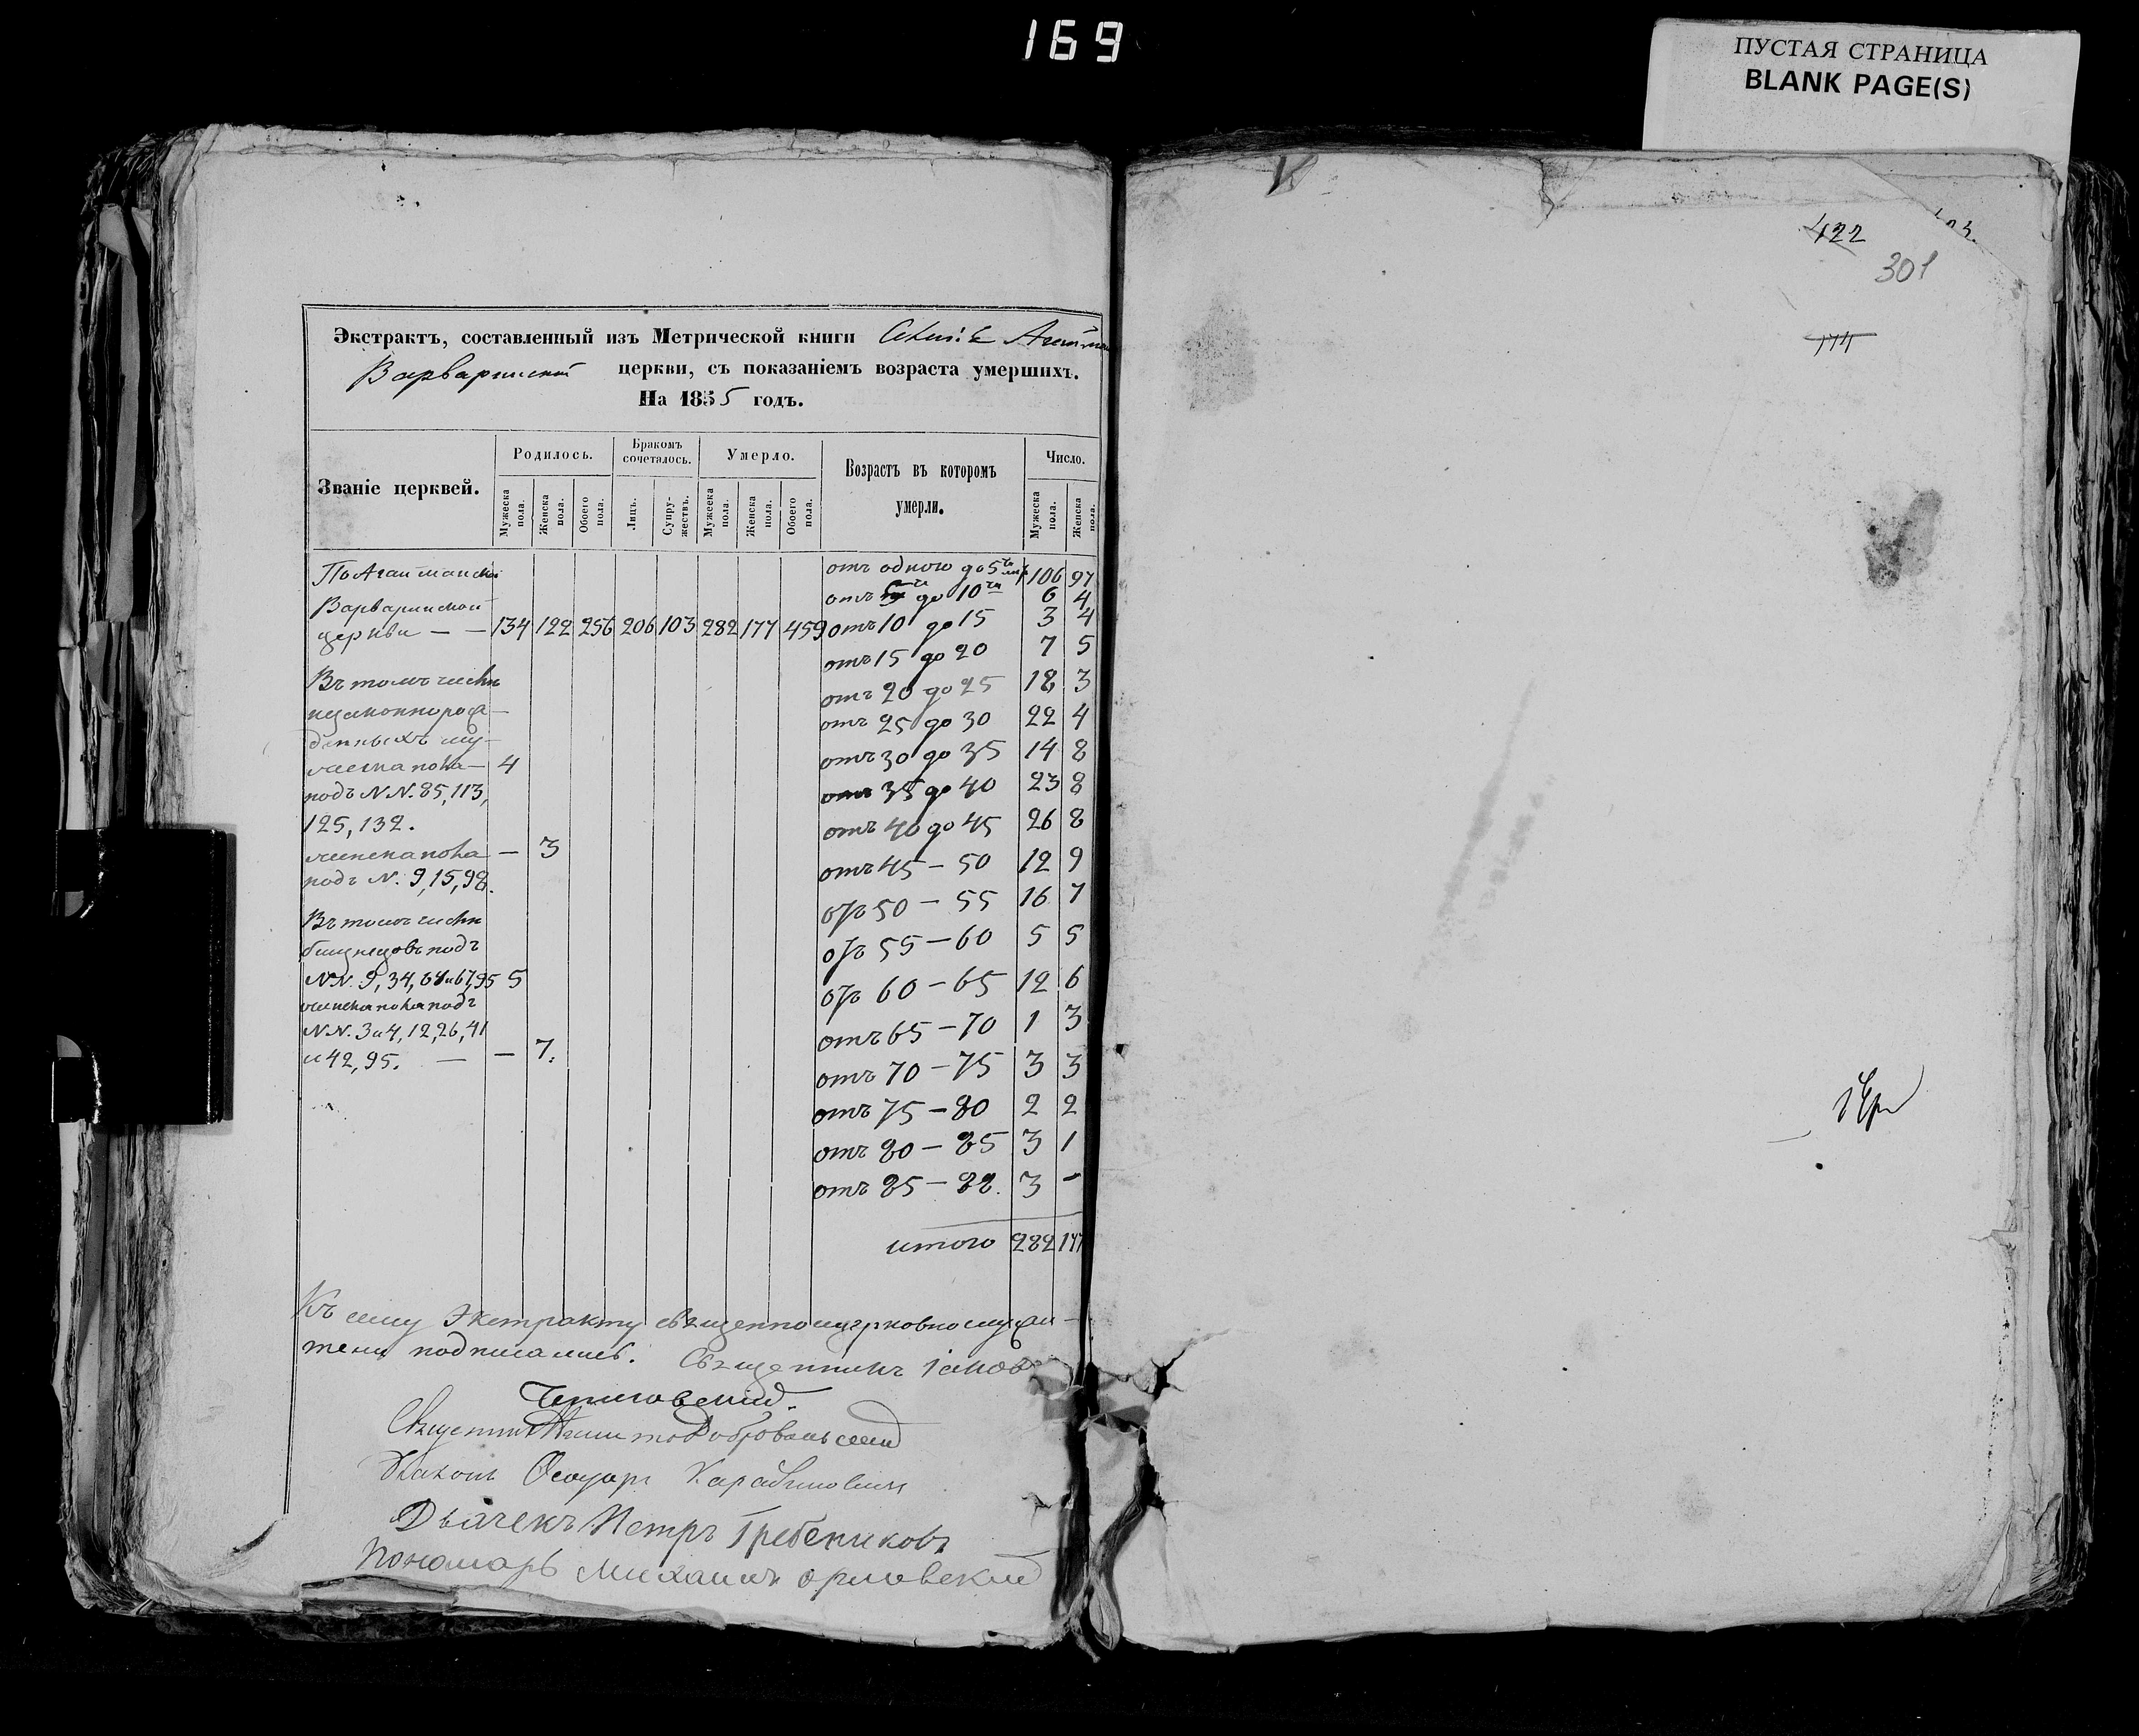 169
ПУСТАЯ СТРАНИЦА
BLANK PAGE(S)
422
301
Экстрактъ, составленный изъ Метрической книги
Варваринской церкви, съ показаніемъ возраста умершихъ.
На 1855 годъ.
Званіе церквей. Родилось. Бракомъ сочеталось. Умерло. Возрастъ въ которомъ умерли. Число.
Мужеска пола. Женска пола. Обоего пола. Лицъ. Супружествъ. Мужеска пола. Женска пола. Обоего пола. Мужеска пола. Женска пола.
отъ одного до 5 106 97
Варваринской отъ 5 до 10 6 4
церкви — — 134 122 256 206 103 282 177 459 отъ 10 до 15 3 4
отъ 15 до 20 7 5
Въ томъ числѣ отъ 20 до 25 18 3
незаконнорож- отъ 25 до 30 22 4
денныхъ му-
жеска пола — 4 отъ 30 до 35 14 8
подъ NN. 85, 113, отъ 35 до 40 23 8
125, 132. отъ 40 до 45 26 8
женска пола — 3 отъ 45 — 50 12 9
подъ N. 9, 15, 98.
отъ 50 — 55 16 7
Въ томъ числѣ
близнецовъ подъ отъ 55 — 60 5 5
NN. 9, 34, 64 и 67, 95 5 отъ 60 — 65 12 6
женска пола подъ
NN. 3 и 4, 12, 26, 41 отъ 65 — 70 1 3
и 42, 95. — — 7. отъ 70 — 75 3 3
отъ 75 — 80 2 2
отъ 80 — 85 3 1
отъ 85 — 88. 3 —
итого 282 177
Къ сему Экстракту священноцерковнослужи-
тели подписались. Священникъ Іаковъ
Священникъ
Дьячекъ Петръ Гребениковъ
Пономарь Михаилъ Орловскій